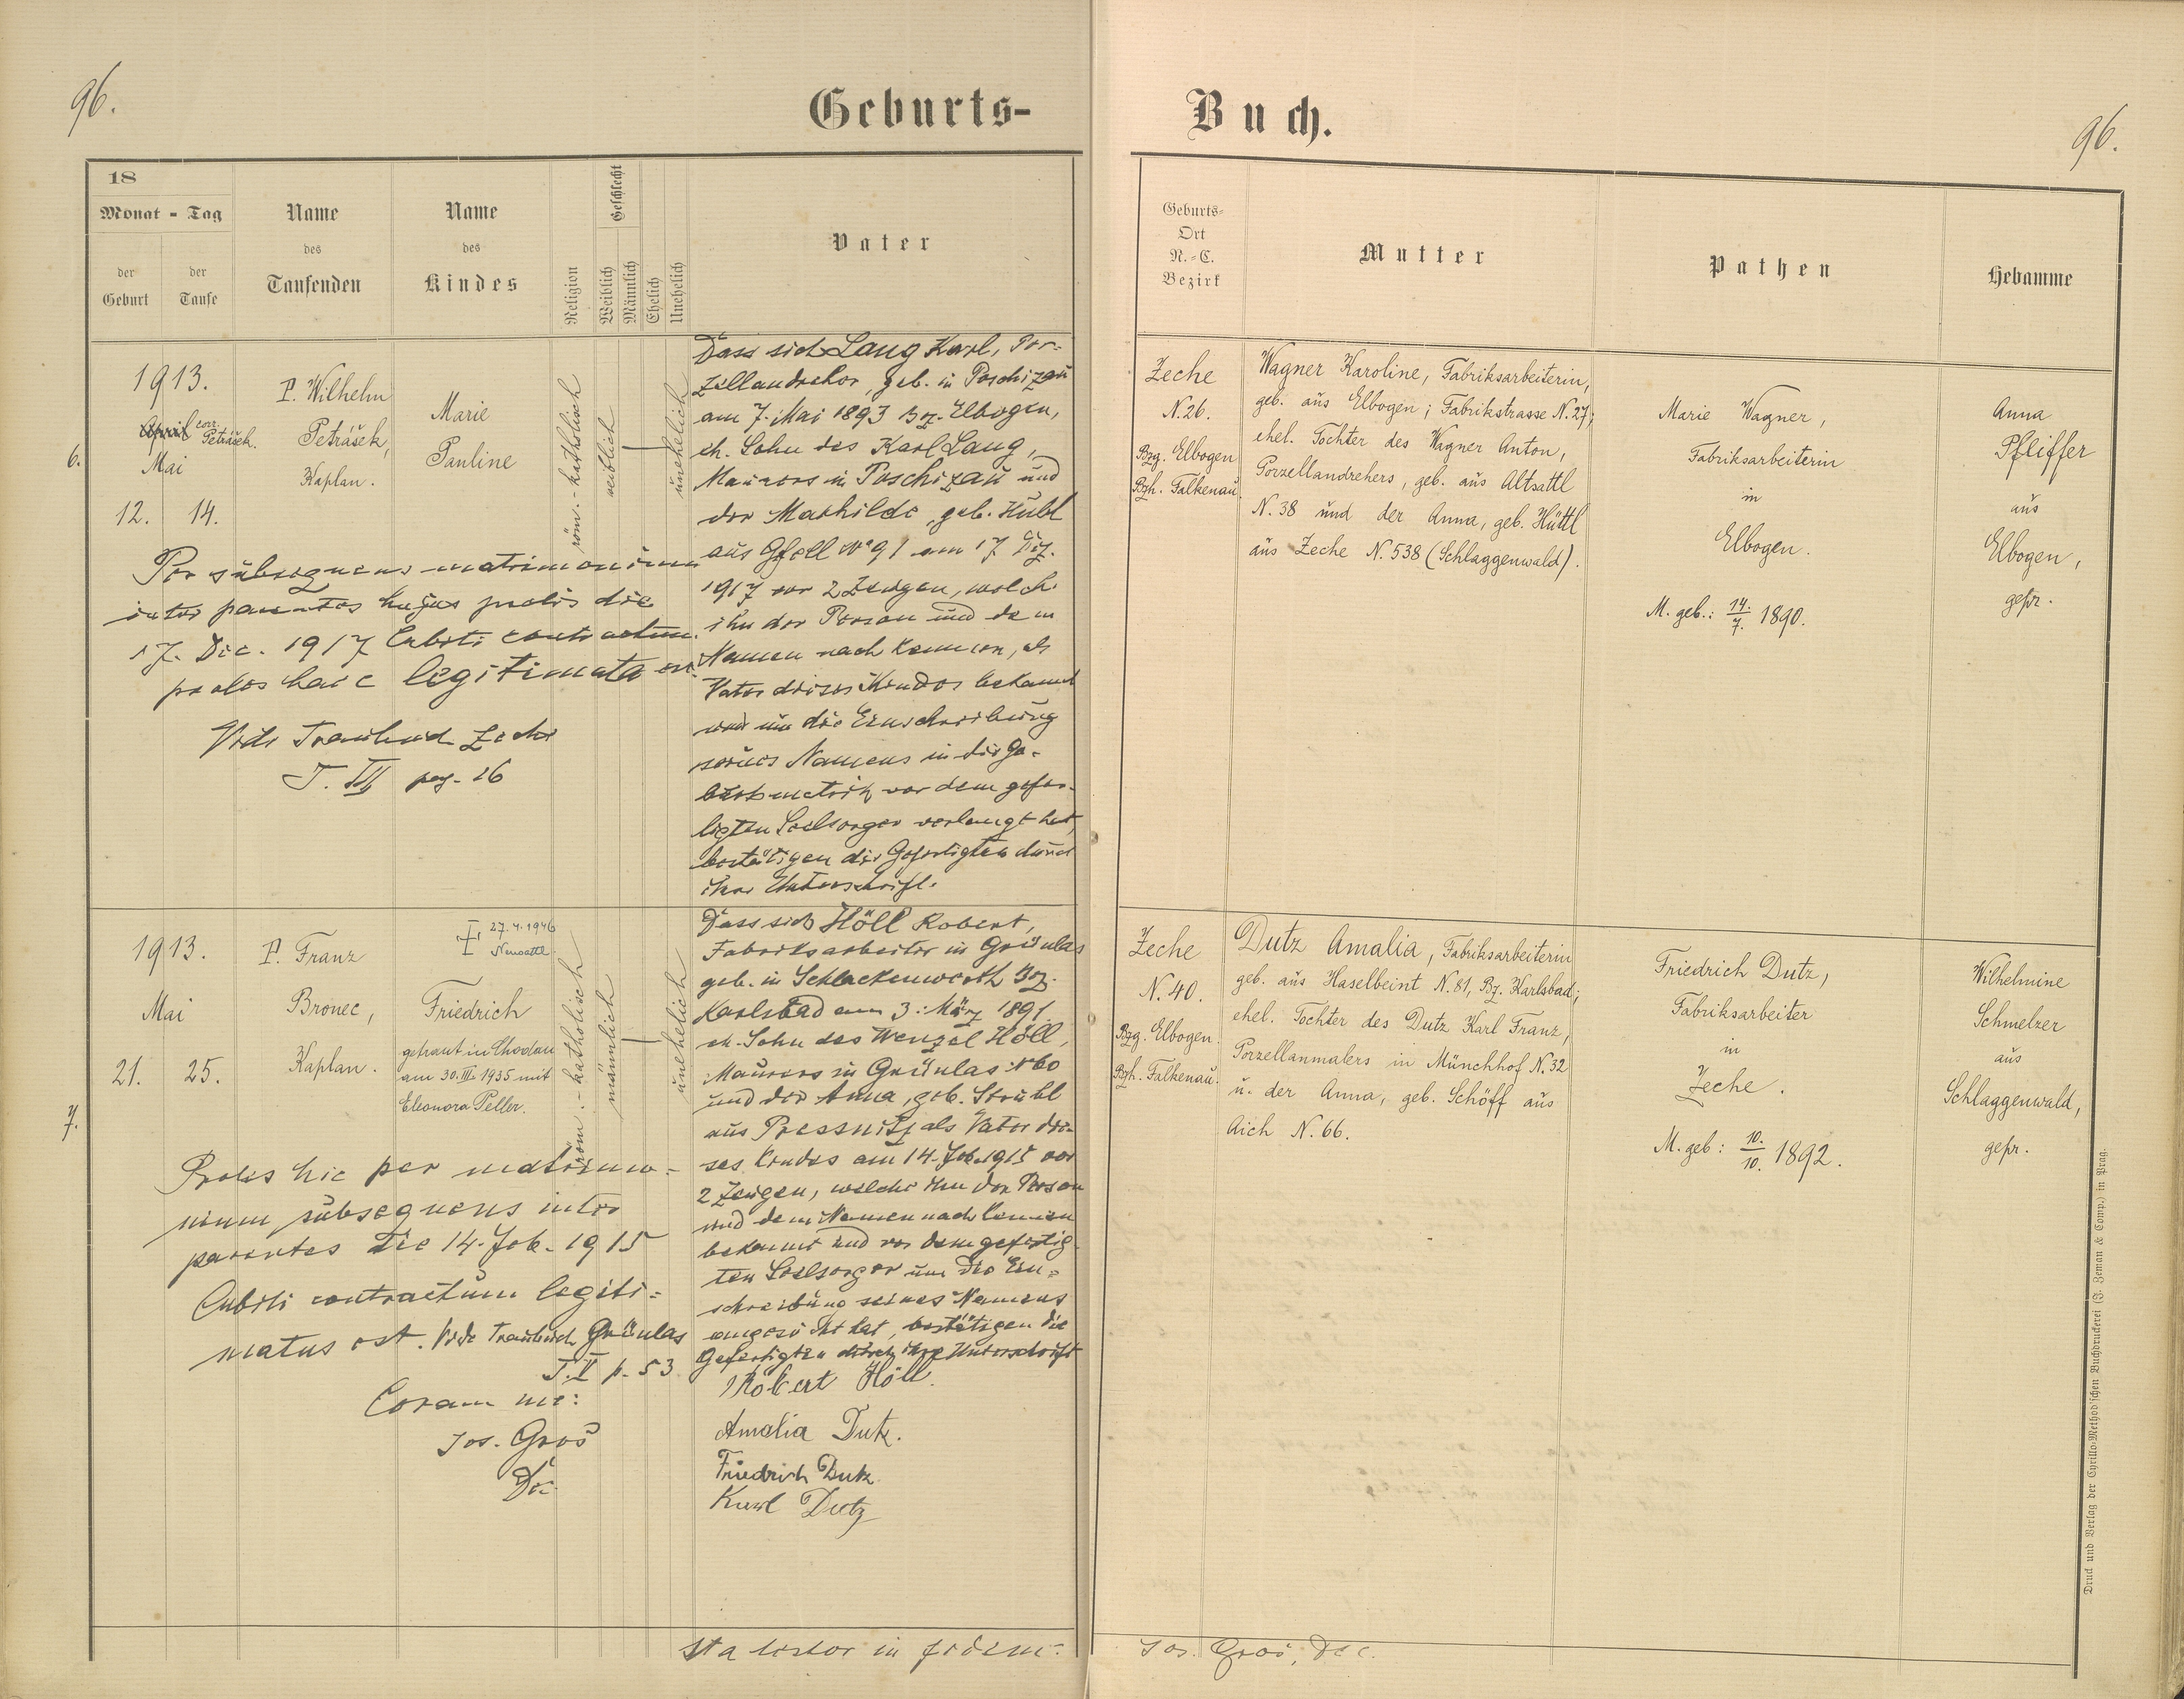 96.
Geburts-
Buch.
96.
18
Monat - Tag
der Geburt
der Taufe
Name des Taufenden
Name des Kindes
Religion
Geschlecht
Weiblich
Männlich
Ehelich
Unehelich
Vater
Geburts-
Ort
N.-C.
Bezirk
Mutter
Pathen
Hebamme
6.
1913.
April corr. Petrášek.
Mai
12. 14.
P. Wilhelm
Petrášek,
Kaplan.
Marie
Pauline
röm.-katholisch
weiblich
unehelich
Dass sich Lang Karl, Por-
zellandreher, geb. in Poschizau
am 7. Mai 1893 Bz. Elbogen,
eh. Sohn des Karl Lang,
Maurers in Poschizau und
der Mathilde, geb. Hübl
aus Gfell N° 91 am 17 Dez.
1917 vor 2 Zeugen, welche
ihn der Person und dem
Namen nach kennen, als
Vater dieses Kindes bekannt
und um die Einschreibung
seines Namens in die Ge-
burtsmatrik vor dem gefer-
tigten Seelsorger verlangt hat,
bestätigen die Gefertigten durch
ihre Unterschrift.
Per subsequens matrimonium
inter parentes hujus prolis die
17. Dec. 1917 Cubiti contractum
proles haec legitimata est.
Vide Traubuch Zeche
T. III pag. 26
Zeche
N. 26.
Bzg. Elbogen
Bzh. Falkenau.
Wagner Karoline, Fabriksarbeiterin,
geb. aus Elbogen; Fabrikstrasse N. 27;
ehel. Tochter des Wagner Anton,
Porzellandrehers, geb. aus Altsattl
N. 38 und der Anna, geb. Hüttl
aus Zeche N. 538 (Schlaggenwald).
Marie Wagner,
Fabriksarbeiterin
in
Elbogen.
M. geb.: 14./7. 1890.
Anna
Pfeiffer
aus
Elbogen,
gepr.
7.
1913.
Mai
21. 25.
P. Franz
Bronec,
Kaplan.
27.4.1946
Neusattl
Friedrich
getraut in Chodau
am 30. III. 1935 mit
Eleonora Peller.
röm.-katholisch
männlich
unehelich
Dass sich Höll Robert,
Fabriksarbeiter in Grünlas
geb. in Schlackenwerth Bz.
Karlsbad am 3. März 1891.
eh. Sohn des Wenzel Höll,
Maurers in Grünlas N 60
und der Anna, geb. Strubl
aus Pressnitz als Vater die-
ses Kindes am 14. Feb. 1915 vor
2 Zeugen, welche ihn der Person
und dem Namen nach kennen
bekannt und vor dem gefertig-
ten Seelsorger um die Ein-
schreibung seines Namens
angesucht hat, bestätigen die
Gefertigten durch ihre Unterschrift
Robert Höll.
Amalia Dutz.
Friedrich Dutz
Karl Dutz
Proles hic per matrimo-
nium subsequens inter
parentes die 14. Feb. 1915
Cubiti contractum legiti-
matus est. Vide Traubuch Grünlas
T. II p. 53
Coram me:
Jos. Groš
Dec
Zeche
N. 40.
Bzg. Elbogen.
Bzh. Falkenau.
Dutz Amalia, Fabriksarbeiterin
geb. aus Haselbeint N. 81, Bz. Karlsbad;
ehel. Tochter des Dutz Karl Franz,
Porzellanmalers in Münchhof N. 32
u. der Anna, geb. Schöff aus
Aich N. 66.
Friedrich Dutz,
Fabriksarbeiter
in
Zeche.
M. geb: 10./10. 1892.
Wilhelmine
Schmelzer
aus
Schlaggenwald,
gepr.
Ita testor in fidem:
Jos. Groš, Dec.
Druck und Verlag der Cyrillo-Method'schen Buchdruckerei (J. Zeman & Comp.) in Prag.